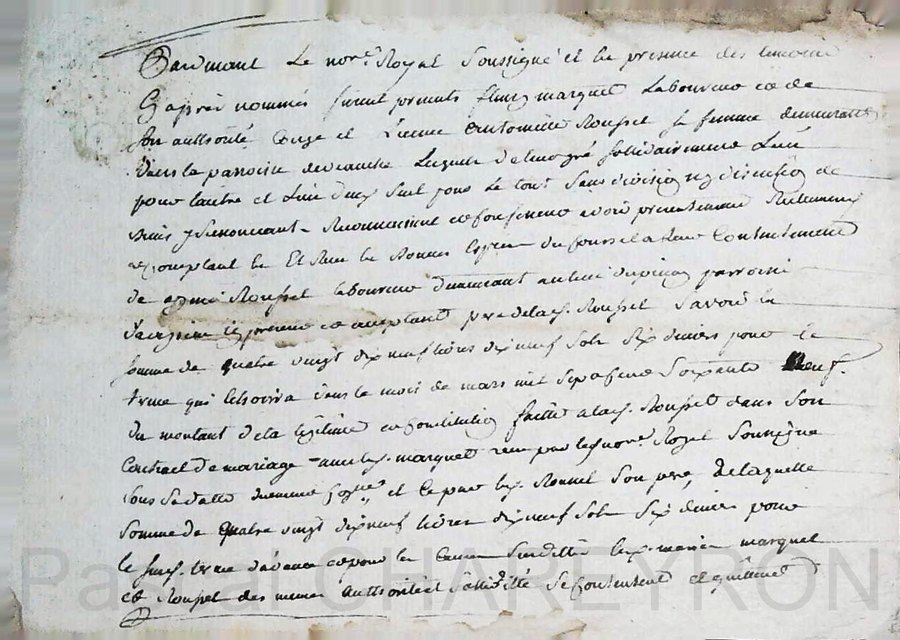 Pardevant Le nore Royal Soussigné et en presence des temoins
Cy après nommés furent presents fleury marquet Laboureur et de
son authorité Conge et Licence Antoinette Roussel sa femme demeurants
dans la parroisse de Lesquels de leur gré sollidairement L'un
pour l'autre et L'un d'eux seul pour Le tout sans division ny discution de
biens y Renonceant Reconnoissent et confessent avoir presentement Reellement
et comptant En Et Receu En Bonnes Especes du Cours et a Leur Contentement
de Roussel laboureur demeurant au lieu parroisse
icy present et acceptant pere de lad. Roussel Savoir la
somme de quatre vingt dix neuf livres dix neuf sols six deniers pour le
terme qui Echoira dans le mois de mars mil sept cent soixante neuf.
Du montant de la légitime et Constitution faitte a lad. Roussel dans son
Contract de mariage avec led. marquet receu par led. nore. Royal Soussigné
sous Sa datte et Ce par led. Roussel Son pere, De laquelle
somme de quatre vingt dix neuf livres dix neuf sols six deniers pour
le susd. terme d'avance et pour les Causes Susdittes les. mariés marquet
et Roussel des memes Authorité et sollidité Se Contentent et quittent
Pascal CHAREYRON